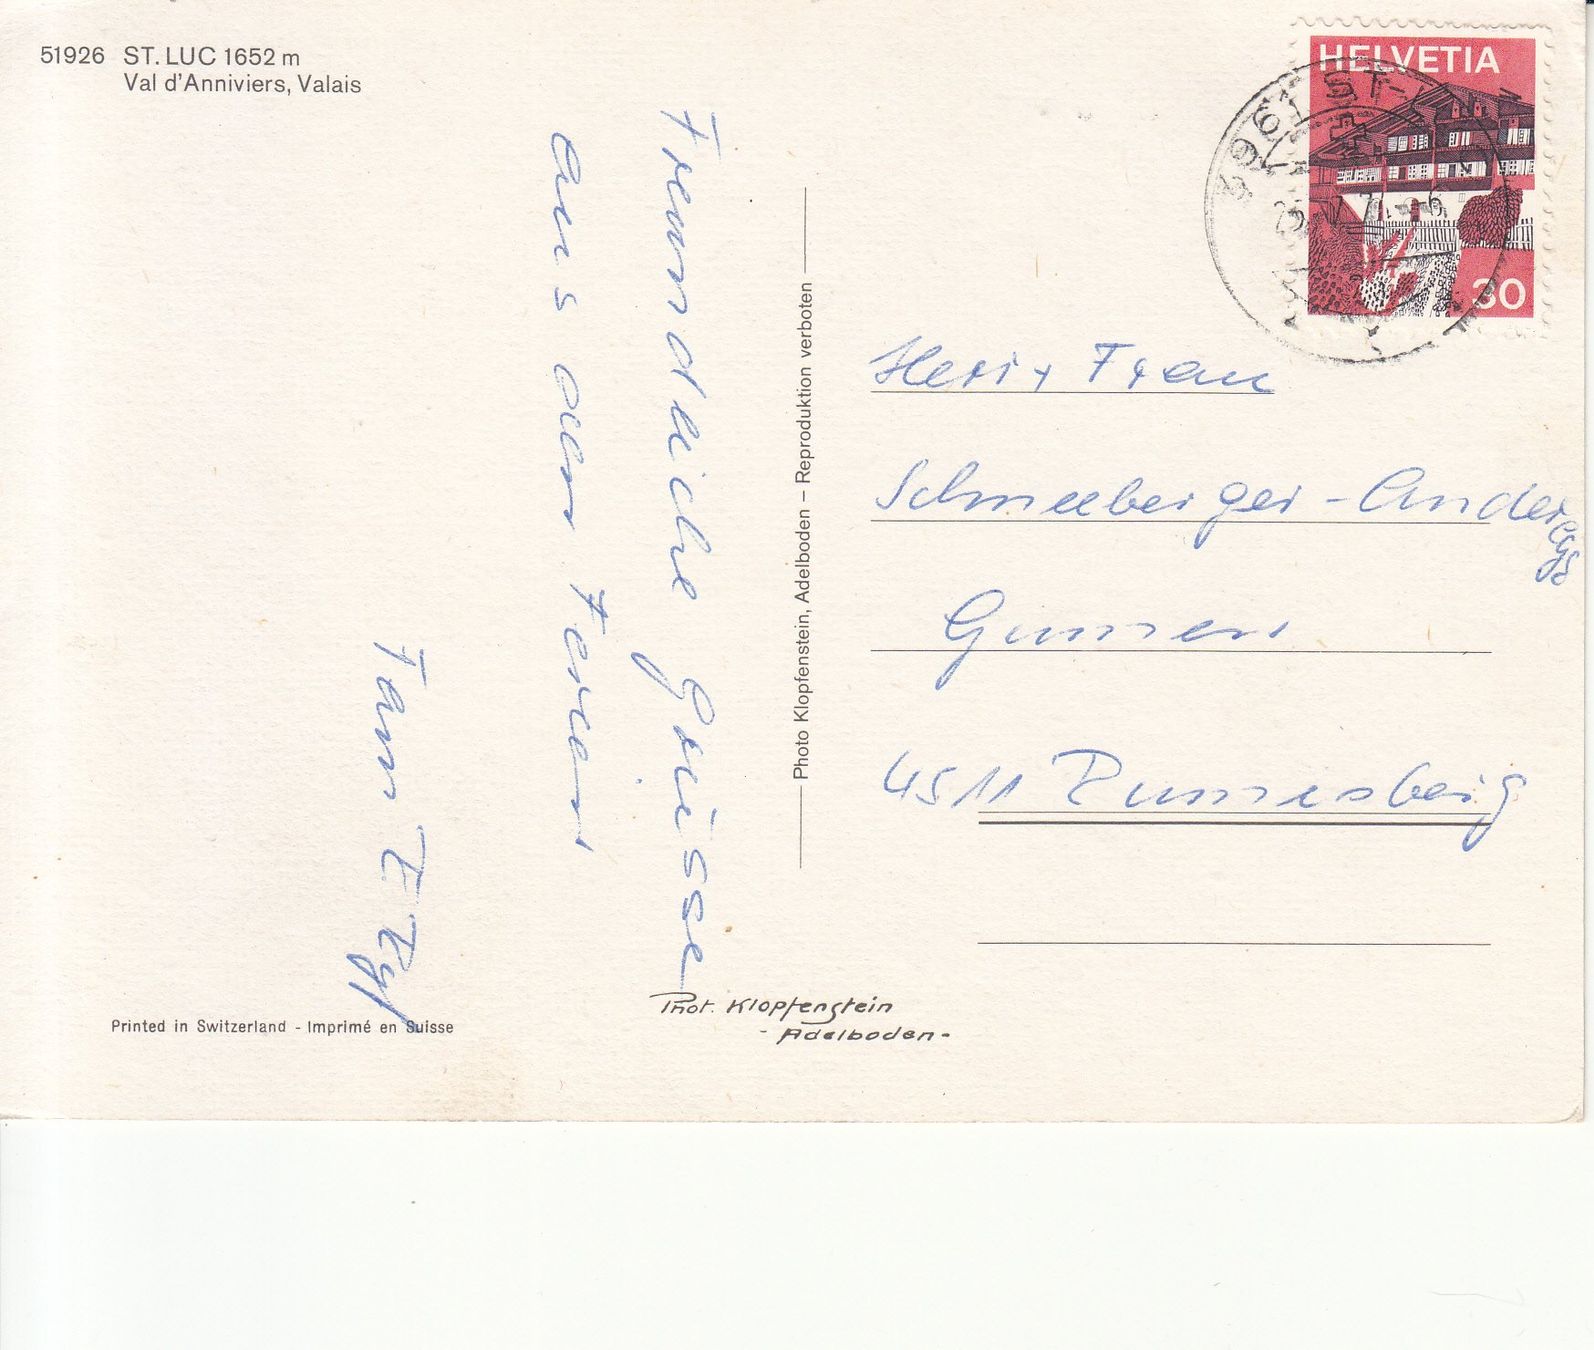 51926 ST. LUC 1652 m
Val d'Anniviers, Valais
Freundliche Grüsse
aus den Ferien
Fam
HELVETIA
30
3961 ST-LUC
Herr + Frau
Schneeberger-Anderegg
Gummen
4511 Rumisberg
Photo Klopfenstein, Adelboden – Reproduktion verboten
Phot. Klopfenstein
- Adelboden -
Printed in Switzerland - Imprimé en Suisse